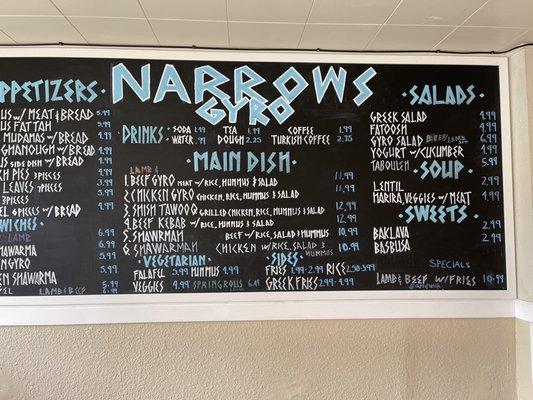 PPETIZERS
NARROWS
GYRO
SALADS
US W/MEAT & BREAD 5.99
US FATTAH 5.99
MUDAMAS W/BREAD 4.99
GHANOUGH W/BREAD 4.99
US SIDE DISH W/BREAD 4.99
CH PIES 3 PIECES 3.99
LEAVES 7 PIECES 3.99
3 PIECES 3.99
EL 6 PIECES W/BREAD 4.99
WICHES
LAMB 6.99
HAWARMA 6.99
N GYRO 5.99
EN SHAWARMA 5.99
EL LAMB & BEEF 5.99
DRINKS: SODA 1.99 TEA 1.99 COFFEE 1.99
WATER .99 DOUGH 2.25 TURKISH COFFEE 2.75
MAIN DISH
LAMB &
1. BEEF GYRO MEAT W/RICE, HUMMUS & SALAD 11.99
2. CHICKEN GYRO CHICKEN, RICE, HUMMUS & SALAD 11.99
3. SHISH TAWOOQ GRILLED CHICKEN, RICE, HUMMUS & SALAD 12.99
4. BEEF KEBAB W/RICE, HUMMUS & SALAD 12.99
5. SHAWRMAH BEEF W/RICE, SALAD & HUMMUS 10.99
6. SHAWRMAH CHICKEN W/RICE, SALAD & HUMMUS 10.99
VEGETARIAN
FALAFUL 5.99 HUMMUS 4.99
VEGGIES 4.99 SPRING ROLLS 6.49
SIDES
FRIES 1.99-2.99 RICE 2.50-3.99
GREEK FRIES 2.99-4.99
GREEK SALAD 4.99
FATOOSH 4.99
GYRO SALAD BEEF/LAMB 6.99
YOGURT W/CUCUMBER 4.99
TABOULEH 5.99
SOUP
LENTIL 2.99
HARIRA, VEGGIES W/MEAT 4.99
SWEETS
BAKLAVA 2.99
BASBUSA 2.99
SPECIALS
LAMB & BEEF W/FRIES 10.99